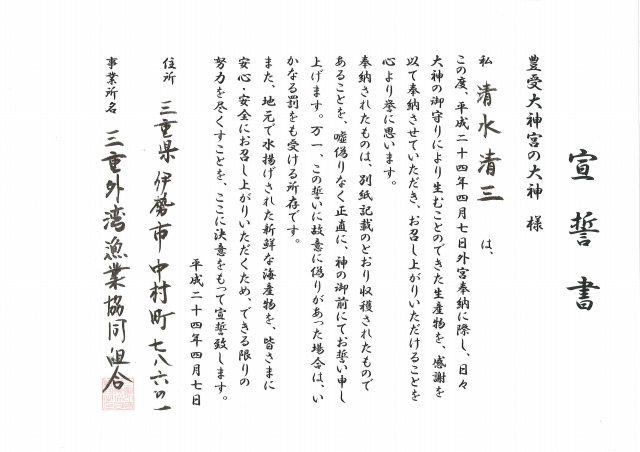 宣誓書
豊受大神宮の大神 様
私 清水清三 は、
この度、平成二十四年四月七日外宮奉納に際し、日々
大神の御守りにより生むことのできた生産物を、感謝を
以て奉納させていただき、お召し上がりいただけることを
心より誉に思います。
奉納されたものは、別紙記載のとおり収穫されたもので
あることを、嘘偽りなく正直に、神の御前にてお誓い申し
上げます。万一、この誓いに故意に偽りがあった場合は、い
かなる罰をも受ける所存です。
また、地元で水揚げされた新鮮な海産物を、皆さまに
安心・安全にお召し上がりいただくため、できる限りの
努力を尽くすことを、ここに決意をもって宣誓致します。
平成二十四年四月七日
住所 三重県伊勢市中村町七八六の一
事業所名 三重外湾漁業協同組合